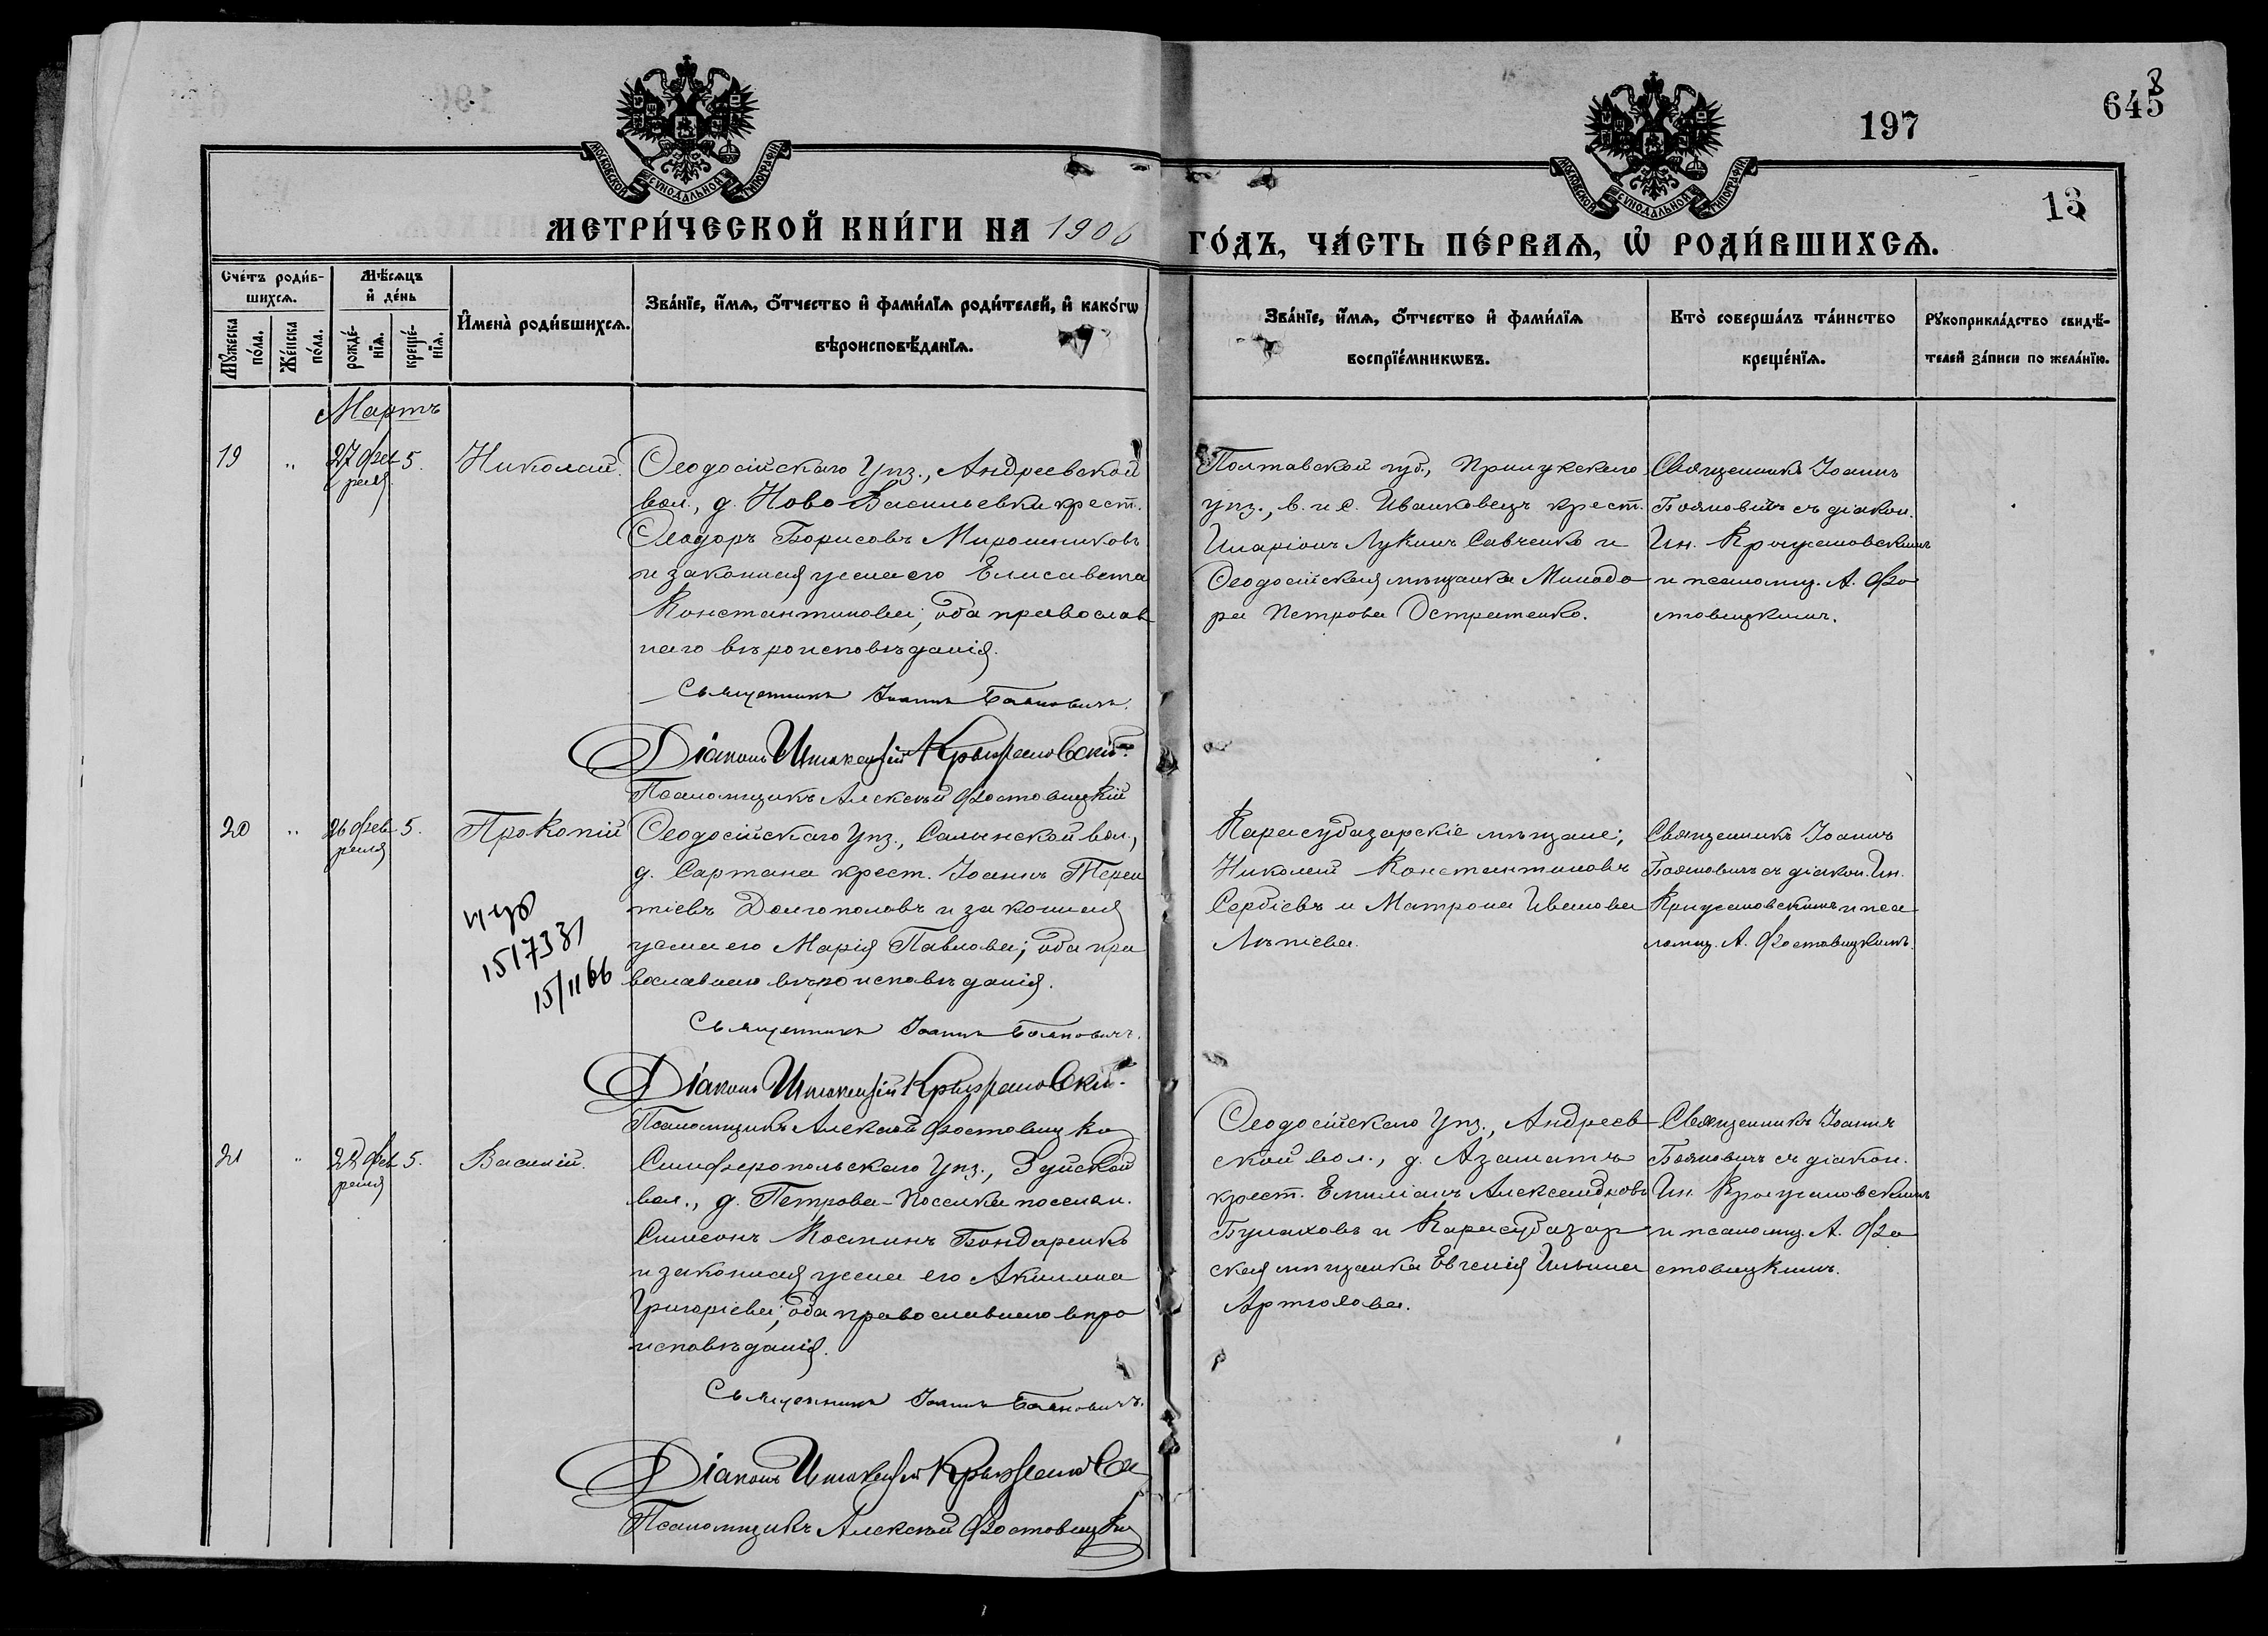 МОСКОВСКОЙ СѴНОДАЛЬНОЙ ТИПОГРАФІИ
МОСКОВСКОЙ СѴНОДАЛЬНОЙ ТИПОГРАФІИ
197
645
8
13
МЕТРИ́ЧЕСКОЙ КНИ́ГИ НА 1906
ГО́ДЪ, ЧА́СТЬ ПЕ́РВАѦ, Ѡ҆ РОДИ́ВШИХСѦ.
Сче́тъ роди́в-
шихсѧ.
Мѣ́сѧцъ
и҆ де́нь
Мꙋ́жеска
по́ла.
Же́нска
по́ла.
рожде́-
нїѧ.
креще́-
нїѧ.
И҆мена̀ роди́вшихсѧ.
Зва́нїе, и҆́мѧ, ѻ҆́тчество и҆ фами́лїѧ роди́телей, и҆ како́гѡ
вѣроисповѣ́данїѧ.
Зва́нїе, и҆́мѧ, ѻ҆́тчество и҆ фами́лїѧ
воспрїе́мникѡвъ.
Кто̀ соверша́лъ та́инство
креще́нїѧ.
Рꙋкоприкла́дство свидѣ́-
телей за́писи по жела́нїю.
Мартъ
19 " 27 фев 5. Николай.
раля
Ѳеодосійскаго Уѣз., Андреевской
вол., д. Ново Васильевки крест.
Ѳеодоръ Борисовъ Мирошниковъ
и законная жена его Елисавета
Константинова; оба православ
наго вѣроисповѣданія.
Священникъ Іоаннъ Бояновичъ.
Діаконъ Иннокентій Крыжановскій
Псаломщикъ Алексѣй Фростовицкій
Полтавской губ., Прилукскаго
уѣз., в. и с. Иванковецъ крест.
Иларіонъ Лукинъ Савченко и
Ѳеодосійская мѣщанка Минодо
ра Петрова Остратенко.
Священникъ Іоаннъ
Бояновичъ съ діакон.
Ин. Крыжановскимъ
и псаломщ. А. Фро
стовицкимъ.
20 " 26 фев 5. Прокопій
раля
Ѳеодосійскаго Уѣз., Салынской вол.,
д. Сартана крест. Іоаннъ Терен
тіевъ Долгополовъ и законная
жена его Марія Павлова; оба пра
вославнаго вѣроисповѣданія.
Священникъ Іоаннъ Бояновичъ.
Діаконъ Иннокентій Крыжановскій
Псаломщикъ Алексѣй Фростовицкій
15/II 66
Карасубазарскіе мѣщане;
Николай Константиновъ
Сербіевъ и Матрона Иванова
Священникъ Іоаннъ
Бояновичъ съ діакон. Ин.
Крыжановскимъ и пса
ломщ. А. Фростовицкимъ.
21 " 28 фев 5. Василій.
раля
Симферопольскаго Уѣз., Зуйской
вол., д. Петрова-Поселка поселян.
Симеонъ Косминъ Бондаренко
и законная жена его Акилина
Григоріева; оба православнаго вѣро
исповѣданія.
Священникъ Іоаннъ Бояновичъ.
Діаконъ Иннокентій Крыжановскій
Псаломщикъ Алексѣй Фростовицкій
Ѳеодосійскаго Уѣз., Андреев
ской вол., д. Азаматъ
крест. Емиліанъ Александровъ
Булаховъ и Карасубазар
ская мѣщанка Евгенія Ильина
Артюхова.
Священникъ Іоаннъ
Бояновичъ съ діакон.
Ин. Крыжановскимъ
и псаломщ. А. Фро
стовицкимъ.